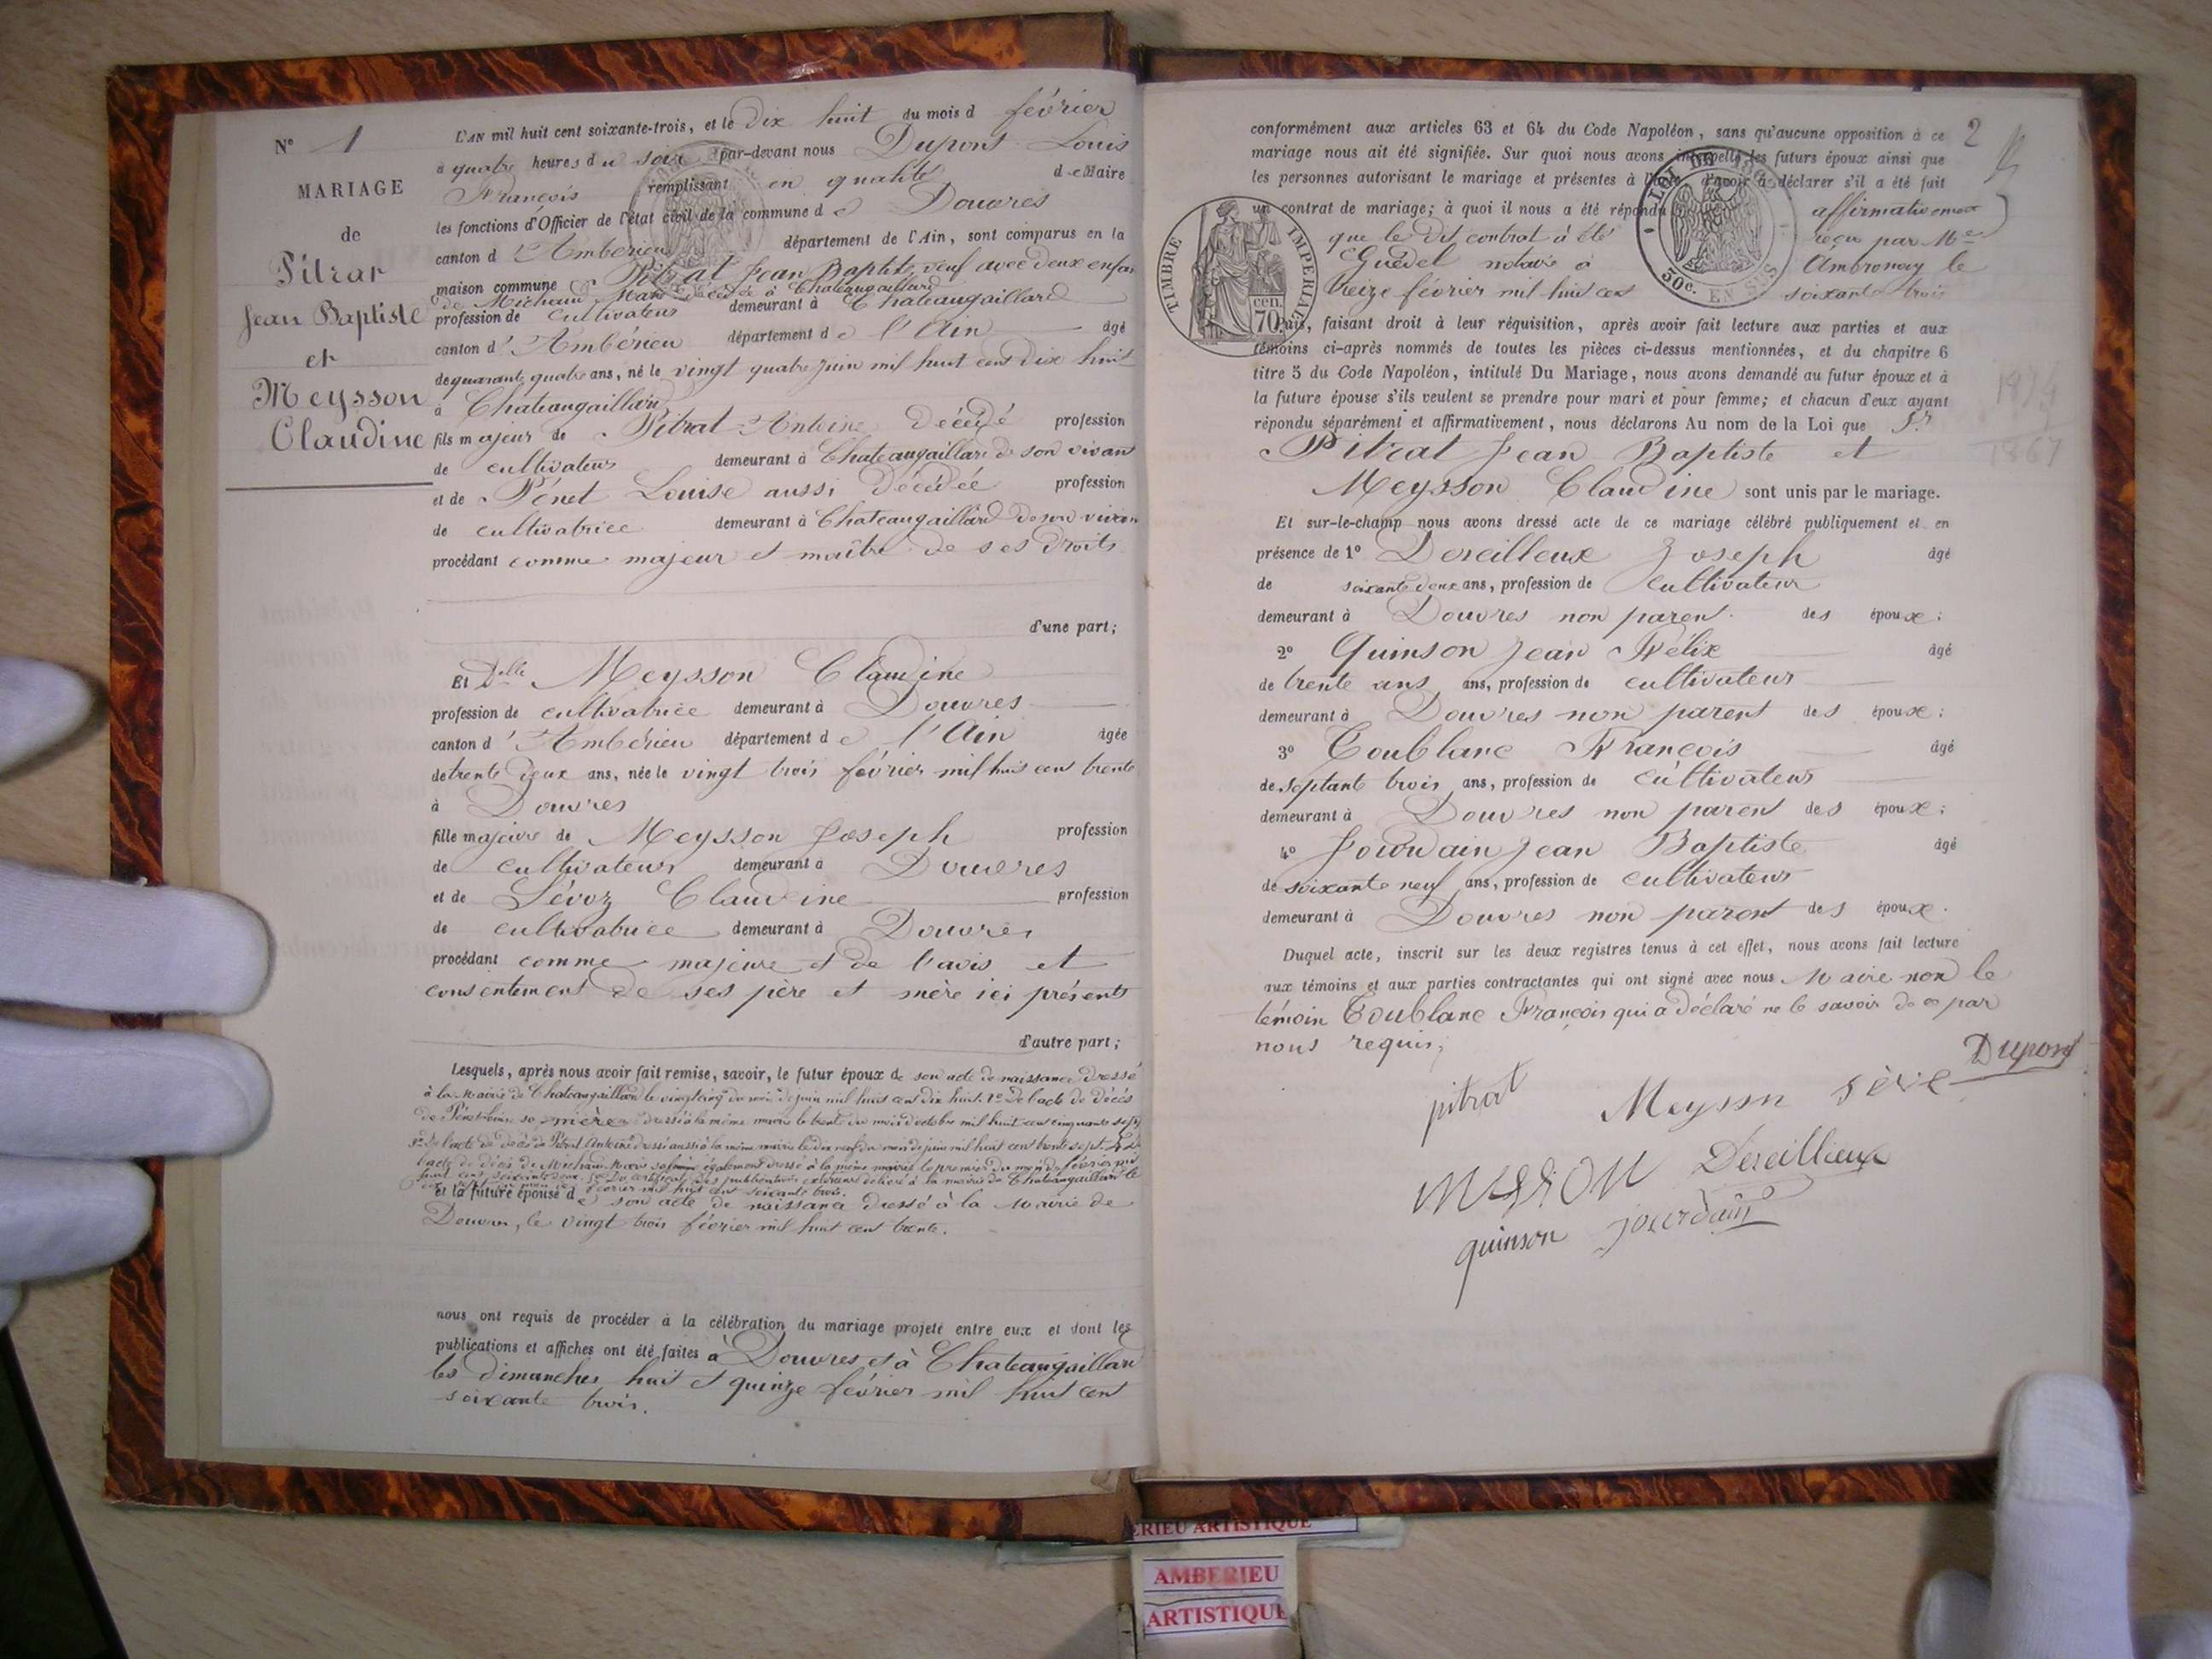 N° 1
MARIAGE
de
Pitrat
Jean Baptiste
et
Meysson
Claudine
L'AN mil huit cent soixante-trois, et le dix huit du mois d février
à quatre heures du soir par-devant nous Dupont Louis
François remplissant en qualité de Maire
les fonctions d'Officier de l'état civil de la commune de Douvres
canton d'Ambérieu département de l'Ain, sont comparus en la
maison commune Pitrat Jean Baptiste veuf avec deux enfans
de Michaud Marie décédée à Chateaugaillard
profession de cultivateur demeurant à Chateaugaillard
canton d'Ambérieu département de l'Ain âgé
de quarante quatre ans, né le vingt quatre juin mil huit cent dix huit
à Chateaugaillard
fils majeur de Pitrat Antoine décédé profession
de cultivateur demeurant à Chateaugaillard de son vivant
et de Pénet Louise aussi décédée profession
de cultivatrice demeurant à Chateaugaillard de son vivant
procédant comme majeur et maître de ses droits
d'une part;
Et Delle Meysson Claudine
profession de cultivatrice demeurant à Douvres
canton d'Ambérieu département de l'Ain âgée
de trente deux ans, née le vingt trois février mil huit cent trente
à Douvres
fille majeure de Meysson Joseph profession
de cultivateur demeurant à Douvres
et de Sévoz Claudine profession
de cultivatrice demeurant à Douvres
procédant comme majeure et de l'avis et
consentement de ses père et mère ici présents
d'autre part;
Lesquels, après nous avoir fait remise, savoir, le futur époux de son acte de naissance dressé
à la Mairie de Chateaugaillard le vingt cinq du mois de juin mil huit cent dix huit. 2° de l'acte de décès
de Pénet Louise sa mère dressé à la même mairie le trente du mois d'octobre mil huit cent cinquante sept
3° de l'acte de décès de Pitrat Antoine dressé aussi à la même mairie le dix neuf du mois de juin mil huit cent trente sept. 4° de
l'acte de décès de Michaud Marie sa femme également dressé à la même mairie le premier du mois de février mil
huit cent soixante deux. 5° Du certificat des publications extérieures délivré à la mairie de Chateaugaillard le
février mil huit cent soixante trois.
et la future épouse de son acte de naissance dressé à la Mairie de
Douvres, le vingt trois février mil huit cent trente.
nous ont requis de procéder à la célébration du mariage projeté entre eux et dont les
publications et affiches ont été faites à Douvres et à Chateaugaillard
les dimanches huit et quinze février mil huit cent
soixante trois.
2
conformément aux articles 63 et 64 du Code Napoléon, sans qu'aucune opposition à ce
mariage nous ait été signifiée. Sur quoi nous avons interpellé les futurs époux ainsi que
les personnes autorisant le mariage et présentes à l'acte d'avoir à déclarer s'il a été fait
un contrat de mariage; à quoi il nous a été répondu affirmativement
que le dit contrat a été reçu par Me
Guédel notaire à Ambronay le
treize février mil huit cent soixante trois
TIMBRE IMPERIAL
70 cen.
LOI DE
50c. EN SUS
Puis, faisant droit à leur réquisition, après avoir fait lecture aux parties et aux
témoins ci-après nommés de toutes les pièces ci-dessus mentionnées, et du chapitre 6
titre 5 du Code Napoléon, intitulé Du Mariage, nous avons demandé au futur époux et à
la future épouse s'ils veulent se prendre pour mari et pour femme; et chacun d'eux ayant
répondu séparément et affirmativement, nous déclarons Au nom de la Loi que Sr
Pitrat Jean Baptiste et
Meysson Claudine sont unis par le mariage.
Et sur-le-champ nous avons dressé acte de ce mariage célébré publiquement et en
présence de 1° Dereilleux Joseph âgé
de soixante deux ans, profession de cultivateur
demeurant à Douvres non parent des époux;
2° Quinson Jean Félix âgé
de trente ans ans, profession de cultivateur
demeurant à Douvres non parent des époux;
3° Toublanc François âgé
de septante trois ans, profession de cultivateur
demeurant à Douvres non parent des époux;
4° Jourdain Jean Baptiste âgé
de soixante neuf ans, profession de cultivateur
demeurant à Douvres non parent des époux.
Duquel acte, inscrit sur les deux registres tenus à cet effet, nous avons fait lecture
aux témoins et aux parties contractantes qui ont signé avec nous Maire non le
témoin Toublanc François qui a déclaré ne le savoir de ce par
nous requis;
Dupont
pitrat Meyson
Dereillieux
quinson jourdain
ERIEU ARTISTIQUE
AMBERIEU
ARTISTIQUE